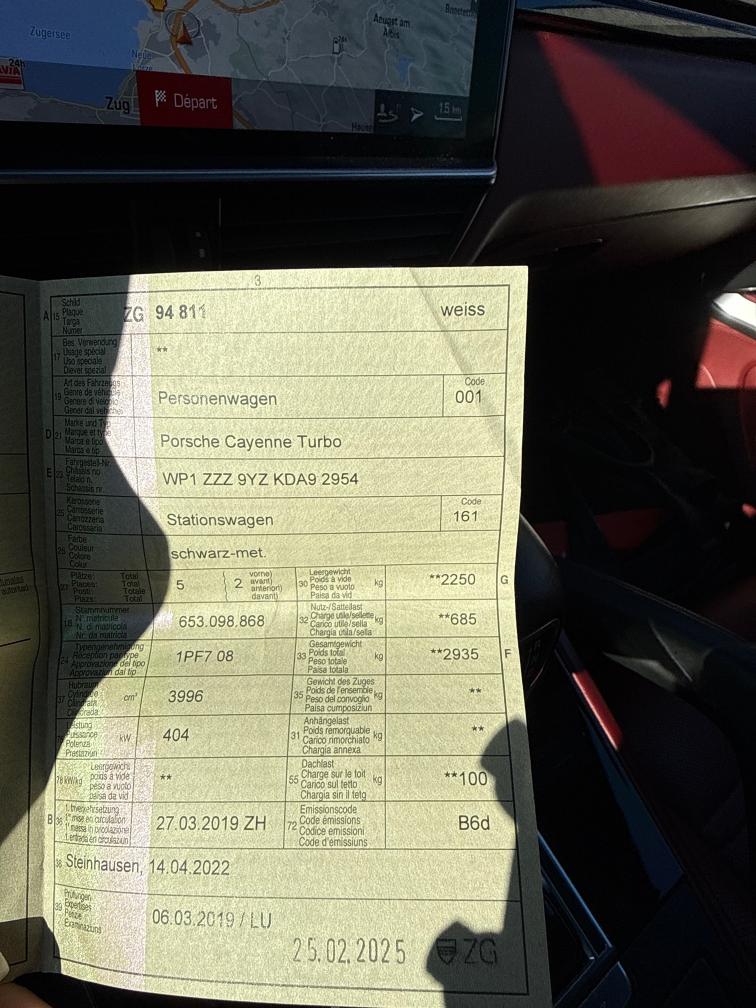 Zugersee
Aeugst am
Albis
24h
AVIA
Neue
Zug
Départ
15 km
3
A 15 Schild
Plaque
Targa
Numer
ZG 94 811
weiss
17 Bes. Verwendung
Usage spécial
Uso speciale
Diever spezial
**
19 Art des Fahrzeugs
Genre de véhicule
Genere di veicolo
Gener dal vehichel
Personenwagen
Code
001
D 21 Marke und Typ
Marque et type
Marca e tipo
Marca e tip
Porsche Cayenne Turbo
E 23 Fahrgestell-Nr.
Châssis no
Telaio n.
Schassis nr.
WP1 ZZZ 9YZ KDA9 2954
25 Karosserie
Carrosserie
Carrozzeria
Carossaria
Stationswagen
Code
161
26 Farbe
Couleur
Colore
Colur
schwarz-met.
27 Plätze: Total
Places: Total
Posti: Totale
Plazs: Total
5
2
vorne)
avant)
anteriori)
davant)
30 Leergewicht
Poids à vide
Peso a vuoto
Paisa da vid
kg
**2250
G
18 Stammnummer
N° matricule
N. di matricola
Nr. da matricla
653.098.868
32 Nutz-/Sattellast
Charge utile/sellette
Carico utile/sella
Chargia utila/sella
kg
**685
24 Typengenehmigung
Réception par type
Approvazione del tipo
Approvaziun dal tip
1PF7 08
33 Gesamtgewicht
Poids total
Peso totale
Paisa totala
kg
**2935
F
37 Hubraum
Cylindrée
Cilindrata
cm³
3996
35 Gewicht des Zuges
Poids de l'ensemble
Peso del convoglio
Paisa cumposiziun
kg
**
Leistung
Puissance
Potenza
Prestaziun
kW
404
31 Anhängelast
Poids remorquable
Carico rimorchiato
Chargia annexa
kg
**
78 kW/kg
Leergewicht
poids à vide
peso a vuoto
paisa da vid
**
55 Dachlast
Charge sur le toit
Carico sul tetto
Chargia sin il tetg
kg
**100
B 36 1. Inverkehrsetzung
1re mise en circulation
1a messa in circolazione
1. entrada en circulaziun
27.03.2019 ZH
72 Emissionscode
Code émissions
Codice emissioni
Code d'emissiuns
B6d
38 Steinhausen, 14.04.2022
39 Prüfungen
Expertises
Perizie
Examinaziuns
06.03.2019 / LU
25.02.2025 ZG